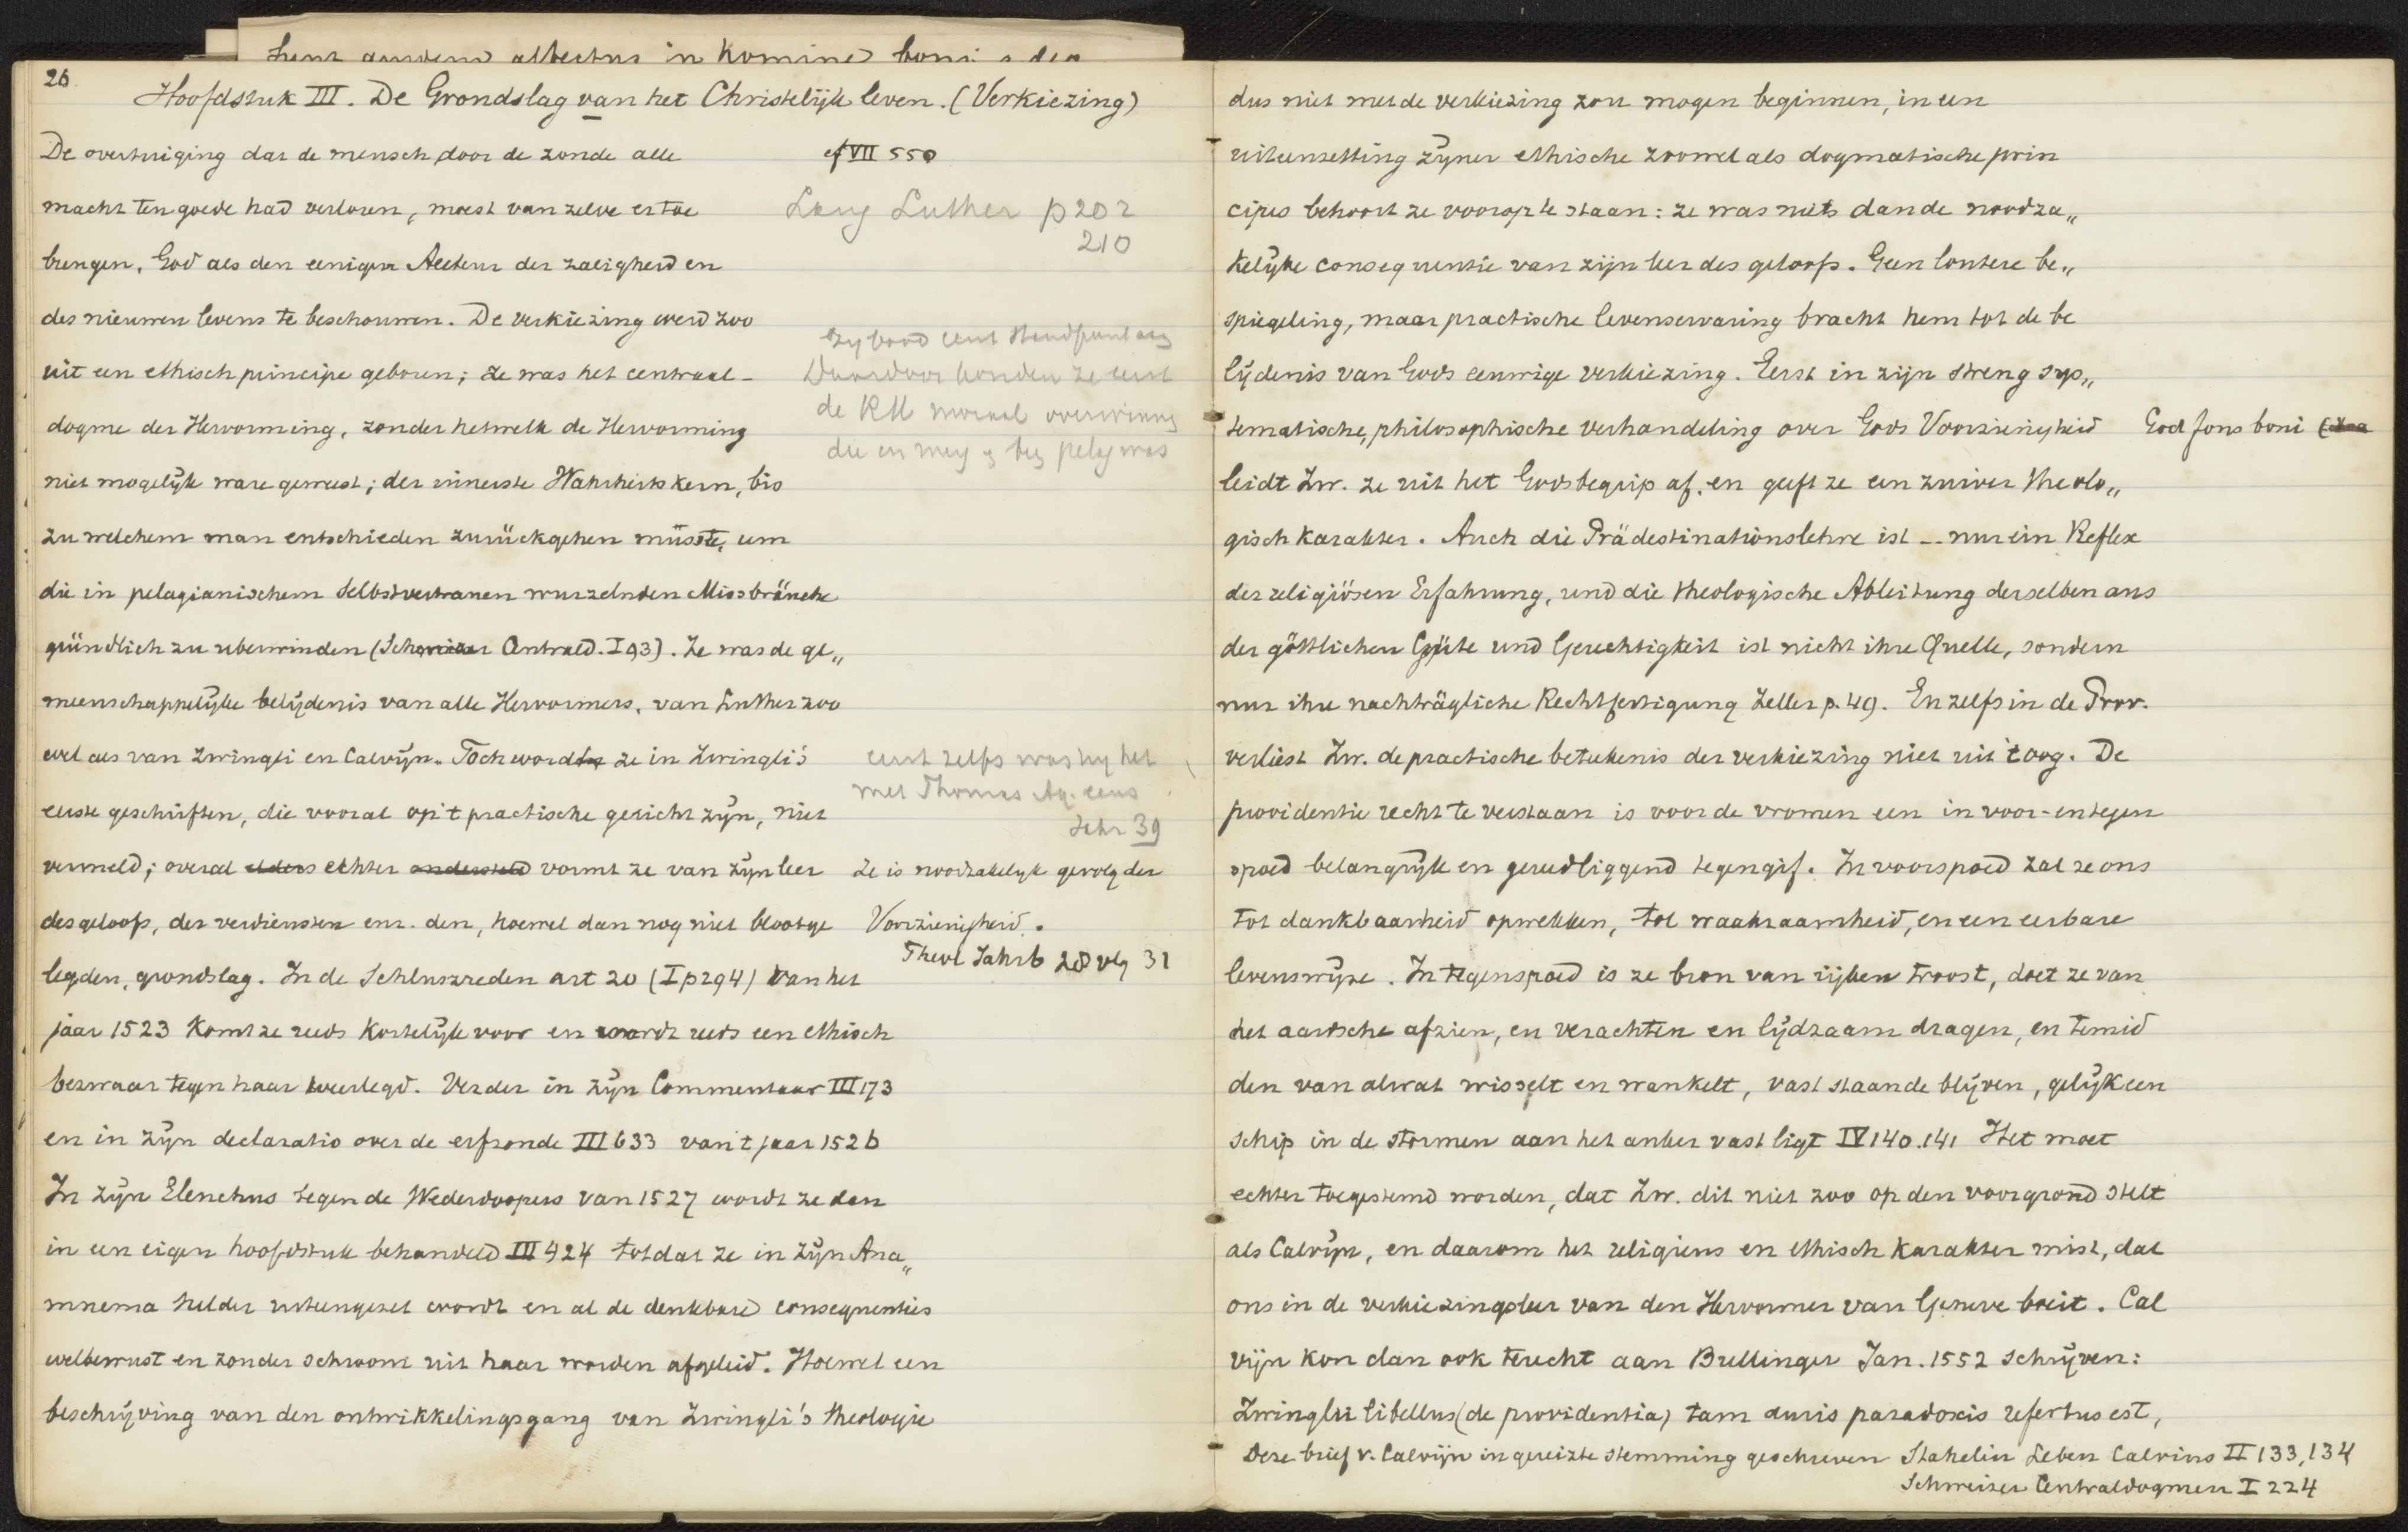 26
Hoofdstuk III. De Grondslag van het Christelijk leven. (Verkiezing)
De overtuiging dat de mensch door de zonde alle
cf VII 550
macht ten goede had verloren, moest van zelve ertoe
Lang Luther p 202
210
brengen, God als den eenigen Auteur der zaligheid en
des nieuwen levens te beschouwen. De verkiezing werd zoo
zy bood eerst
uit een ethisch principe geboren; ze was het centraal-
Daardoor konden ze eerst
de RK moraal overwinnen
dogme der Hervorming, zonder hetwelk de Hervorming
die en pelag was
niet mogelijk ware geweest; der innerste Wahrheitskern, bis
zu welchem man entschieden zurückgehen müsste, um
die in pelagianischem Selbstvertrauen wurzelnden Missbräuche
gründlich zu uberwinden (Schweizer Centrald. I 93). Ze was de ge„
meenschappelijke belijdenis van alle Hervormers, van Luther zoo
wel als van Zwingli en Calvijn. Toch wordt ze in Zwingli's
eerst zelfs was hy het
met Thomas Aq. eens
eerste geschriften, die vooral op 't practische gericht zijn, niet
Jahr 39
vermeld; overal elders echter vormt ze van zijn leer
Ze is noodzakelijk gevolg der
des geloofs, der verdiensten enz. den, hoewel dan nog niet blootge
Voorzienigheid.
Theol Jahrb 28 vlg 31
legden, grondslag. In de Schluszreden art 20 (I p 294) van het
jaar 1523 komt ze reeds kortelijk voor en wordt reeds een ethisch
bezwaar tegen haar weerlegd. Verder in zijn Commentaar III 173
en in zijn declaratio over de erfzonde III 633 van 't jaar 1526
In zijn Elenchus tegen de Wederdoopers van 1527 wordt ze dan
in een eigen hoofdstuk behandeld III 424 totdat ze in zijn Ana„
mnema helder uiteengezet wordt en al de denkbare consequenties
welbewust en zonder schroom uit haar worden afgeleid. Hoewel een
beschrijving van den ontwikkelingsgang van Zwingli's theologie
dus niet met de verkiezing zou mogen beginnen, in een
uiteenzetting zijner ethische zoowel als dogmatische prin
cipes behoort ze voorop te staan: ze was niets dan de noodza„
kelijke consequentie van zijn leer des geloofs. Geen loutere be„
spiegeling, maar practische levenservaring bracht hem tot de be
lijdenis van Gods eeuwige verkiezing. Eerst in zijn streng sys„
tematische, philosophische verhandeling over Gods Voorzienigheid
God fons boni
leidt Zw. ze uit het Godsbegrip af, en geeft ze een zuiver theolo„
gisch karakter. Auch die Prädestinationslehre ist -- nur ein Reflex
der religiösen Erfahrung, und die theologische Ableitung derselben aus
der göttlichen Güte und Gerechtigkeit ist nicht ihre Quelle, sondern
nur ihre nachträgliche Rechtfertigung Zeller p. 49. En zelfs in de Prov.
verliest Zw. de practische beteekenis der verkiezing niet uit 't oog. De
providentie recht te verstaan is voor de vromen een in voor- en tegen
spoed belangrijk en gereedliggend tegengif. In voorspoed zal ze ons
tot dankbaarheid opwekken, tot waakzaamheid, en een eerbare
levenswijze. In tegenspoed is ze bron van rijken troost, doet ze van
het aardsche afzien, en verachten en lijdzaam dragen, en temid
den van alwat wisselt en wankelt, vast staande blijven, gelijk een
schip in de stormen aan het anker vast ligt IV 140.141 Het moet
echter toegestemd worden, dat Zw. dit niet zoo op den voorgrond stelt
als Calvijn, en daarom het religieus en ethisch karakter mist, dat
ons in de verkiezingsleer van den Hervormer van Geneve boeit. Cal
vijn kon dan ook terecht aan Bullinger Jan. 1552 schrijven:
Zwinglii libellus (de providentia) tam duris paradoxis refertus est,
Deze brief v. Calvijn in gereizte stemming geschreven Stahelin Leben Calvins II 133, 134
Schweizer Centraldogmen I 224